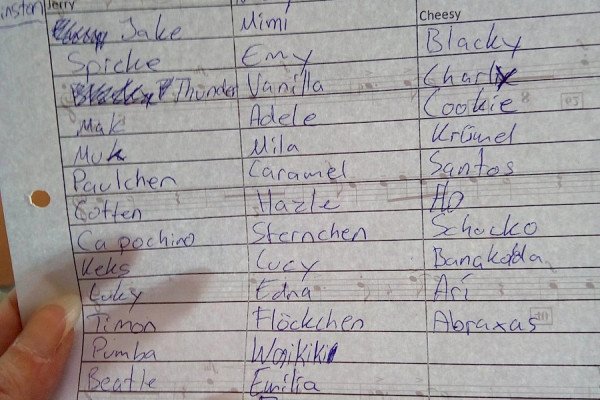 insten Jerry
Jake Mimi Cheesy
Spicke Emy Blacky
Thunder Vanilla Charly
Mak Adele Cookie
Muk Mila Krümel
Paulchen Caramel Santos
Cotten Hazle
Capochino Sternchen Schocko
Keks Lucy Banakoda
Luky Edna Ari
Timon Flöckchen Abraxas
Pumba Wajkiki
Beatle Emilia